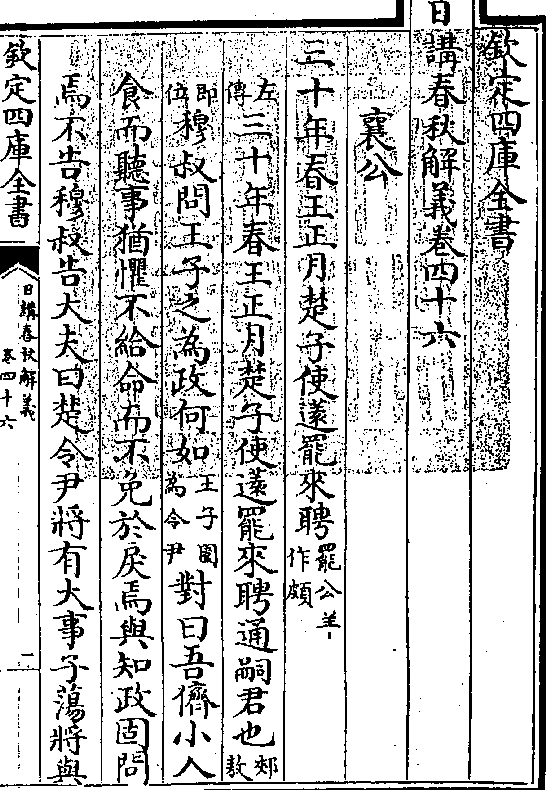 欽定四庫全書
日講春秋解義卷四十六
襄公
三十年春王正月楚子使薳罷來聘罷公羊作頗
左傳三十年春王正月楚子使薳罷來聘通嗣君也郟敖
即位穆叔問王子之為政何如王子圍為令尹對曰吾儕小人
食而聽事猶懼不給命而不免於戾焉與知政固問
焉不告穆叔告大夫曰楚令尹將有大事子蕩將與
欽定四庫全書
日講春秋解義
卷四十六
一